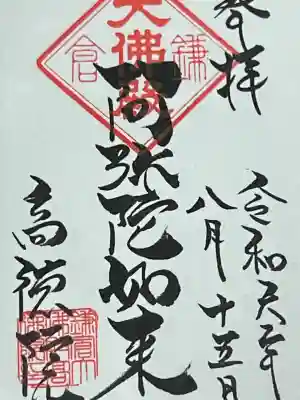 奉拝
令和元年
八月十五日
大佛殿
鎌倉
阿弥陀如来
高徳院